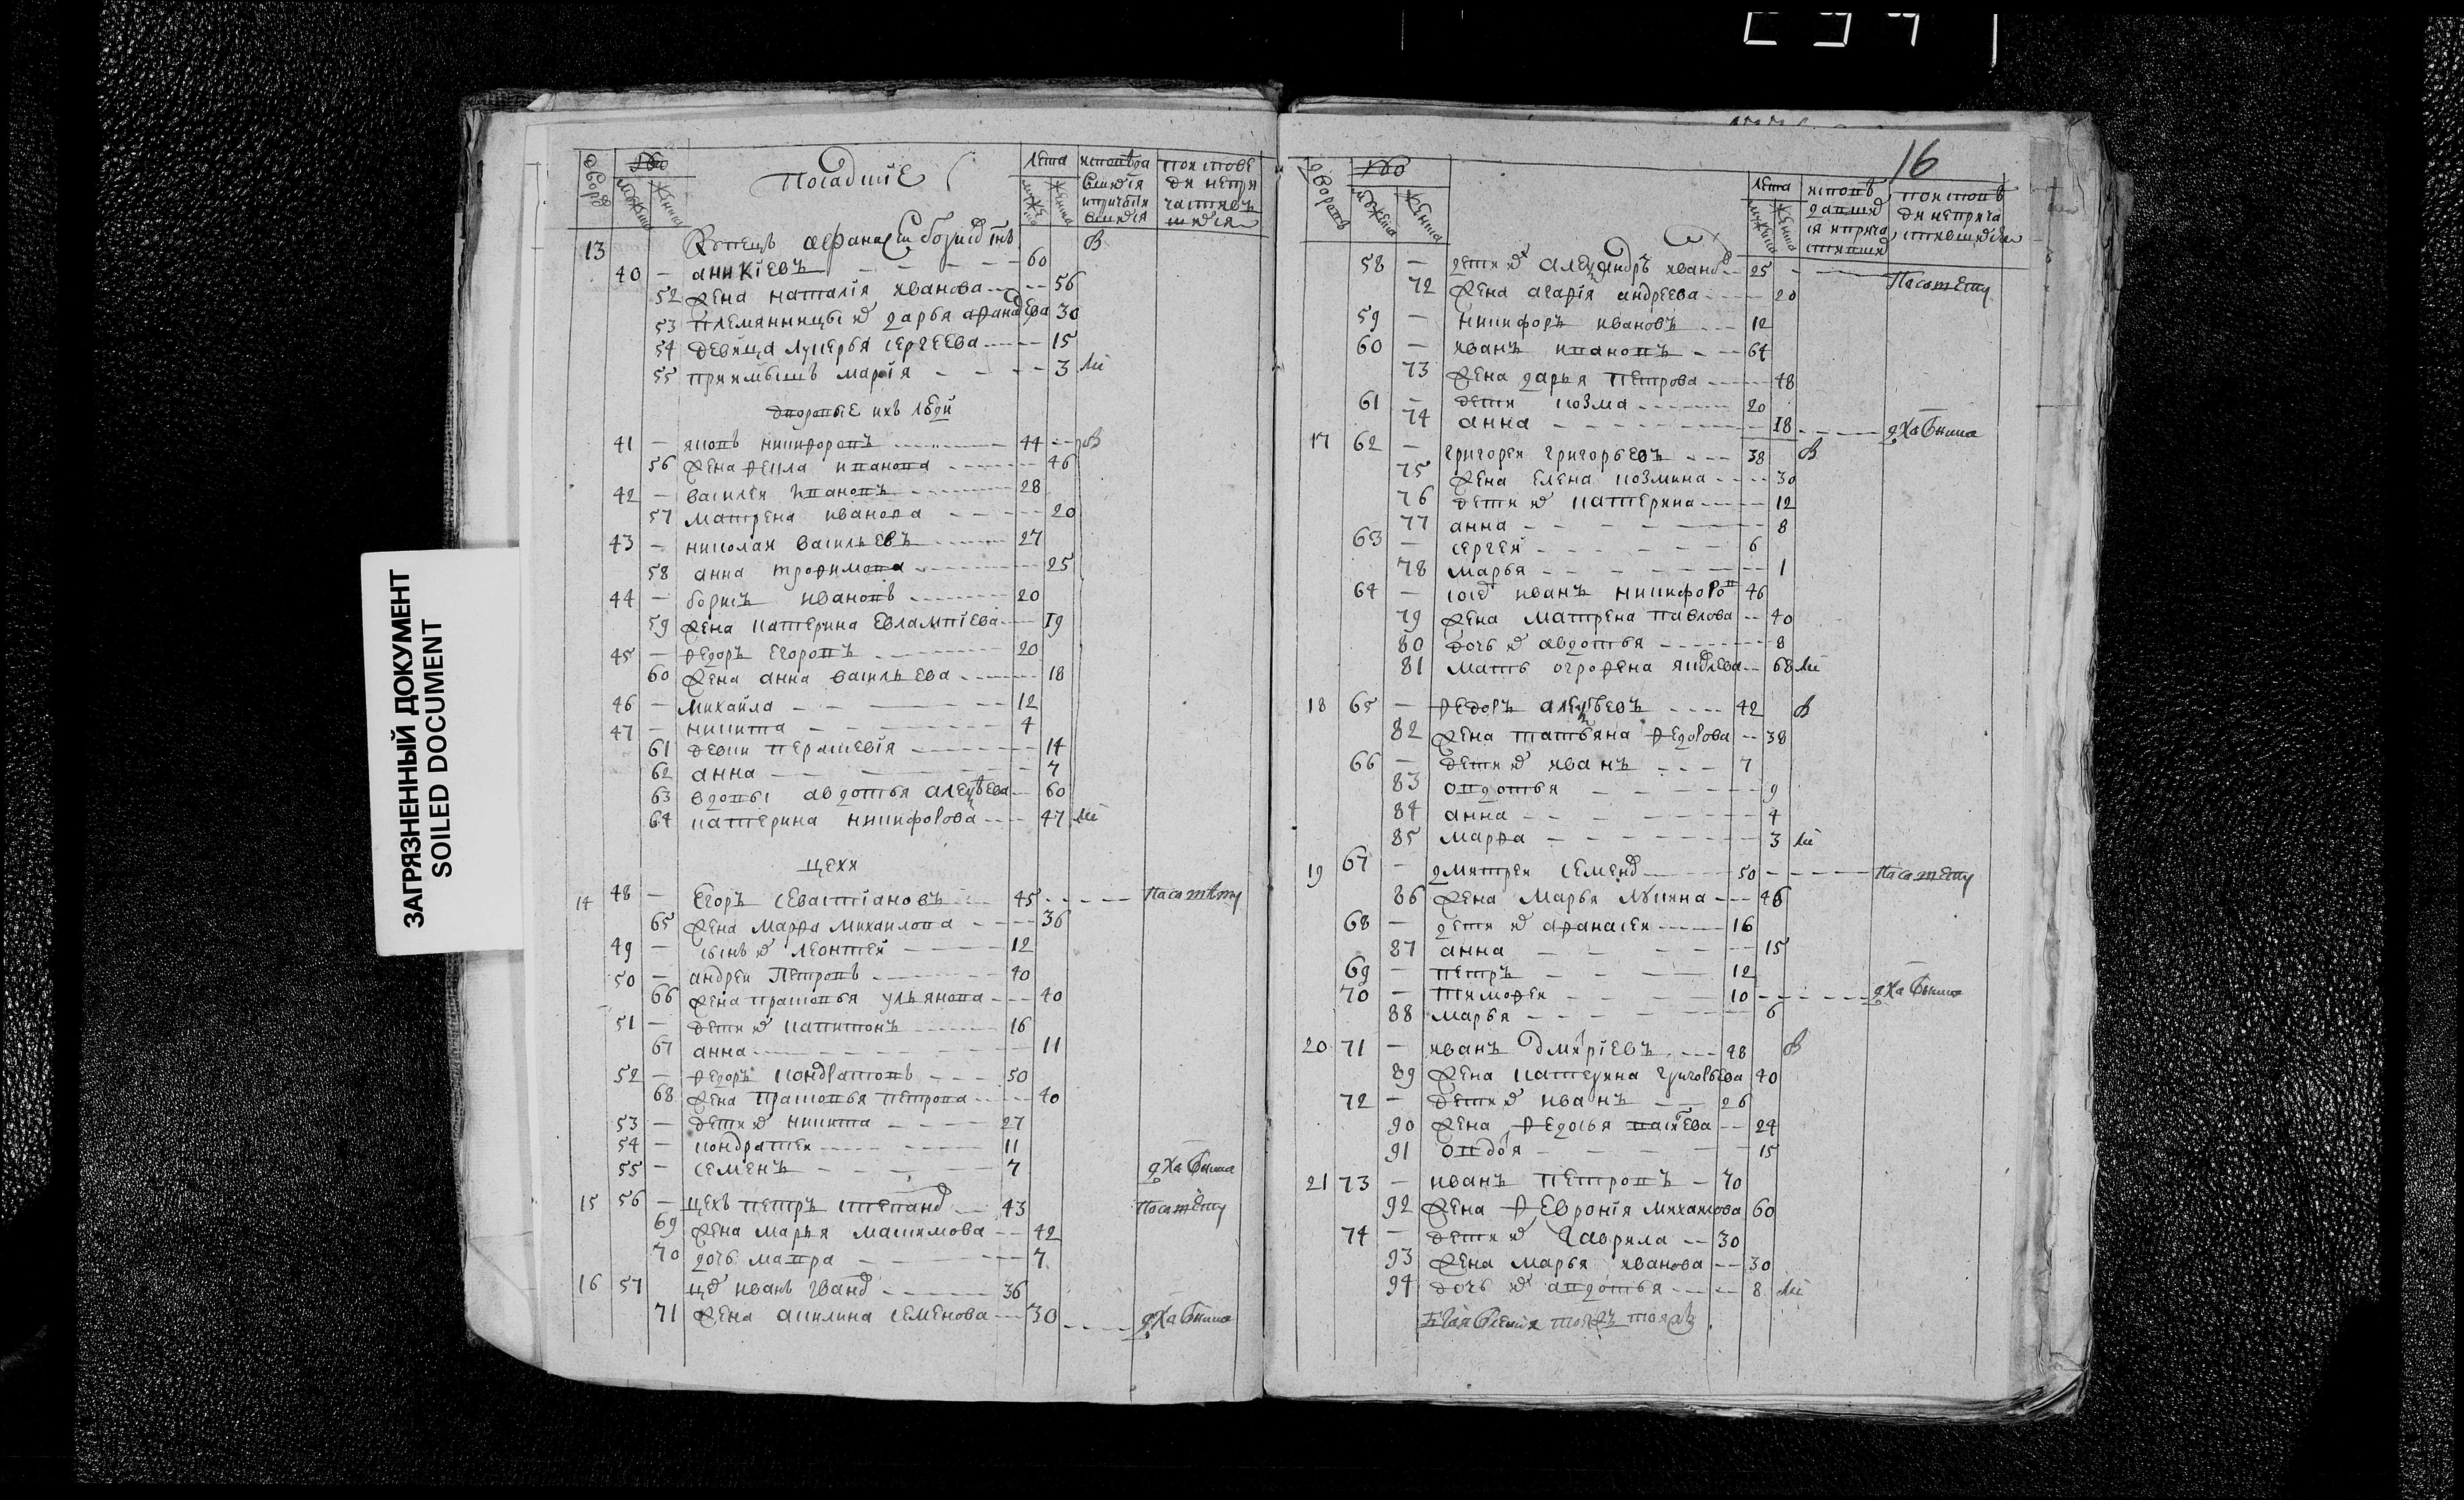 16
ЗАГРЯЗНЕННЫЙ ДОКУМЕНТ
SOILED DOCUMENT
дворы
мужеска
женска
посадские
лета
муже
женска
13 купецъ афанасей борисо
40 — аникіевъ 60
52 жена наталія иванова 56
53 племянницы ево дарья афанасева 30
54 девица лукерья сергеева 15
55 приимышъ марія 3
дворовые ихъ люди
41 — яковъ никифоровъ 44
56 жена фекла иванова 46
42 — василеи ивановъ 28
57 матрена иванова 20
43 — николаи васильевъ 27
58 анна трофимова 25
44 — борисъ ивановъ 20
59 жена катерина евлампіева 19
45 — федоръ егоровъ 20
60 жена анна васильева 18
46 — михаила 12
47 — никита 4
61 девки перасковія 14
62 анна 7
63 вдовы авдотья алексѣева 60
64 катерина никифорова 47
цехи
14 48 — егоръ севастіановъ 45
65 жена марфа михаилова 36
49 — сынъ ево леонтеи 12
50 — андреи петровъ 40
66 жена прасковья ульянова 40
51 — дети ево капитонъ 16
67 анна 11
52 — федоръ кондратовъ 50
68 жена прасковья петрова 40
53 — дети ево никита 27
54 — кондратеи 11
55 — семенъ 7
15 56 — цехъ петръ степано 43
69 жена марья максимова 42
70 дочь мавра 7
16 57 иванъ ивано 36
71 жена акилина семенова 30
дворовъ
мужеска
женска
лета
58 — дети ево александръ ивано 25
72 жена агафія андреева 20
59 — никифоръ ивановъ 12
60 — иванъ ивановъ 64
73 жена дарья петрова 48
61 — дети козма 20
74 анна 18
17 62 — григореи григорьевъ 38
75 жена елена козмина 30
76 дети ево катерина 12
77 анна 8
63 — сергеи 6
78 марья 1
64 — иванъ никифоров 46
79 жена матрена павлова 40
80 дочь ево авдотья 8
81 мать огрофена яковлева 68
18 65 — федоръ алексѣевъ 42
82 жена татьяна федорова 38
66 — дети ево иванъ 7
83 овдотья 9
84 анна 4
85 марфа 3
19 67 — дмитреи семено 50
86 жена марья лукина 46
68 — дети ево афанасеи 16
87 анна 15
69 — петръ 12
70 — тимофеи 10
88 марья 6
20 71 — иванъ дмитріевъ 48
89 жена катерина григорьева 40
72 — дети ево иванъ 26
90 жена федосья 24
91 15
21 73 — иванъ петровъ 70
92 жена февронія михаилова 60
74 — дети ево гаврила 30
93 жена марья иванова 30
94 дочь ево авдотья 8